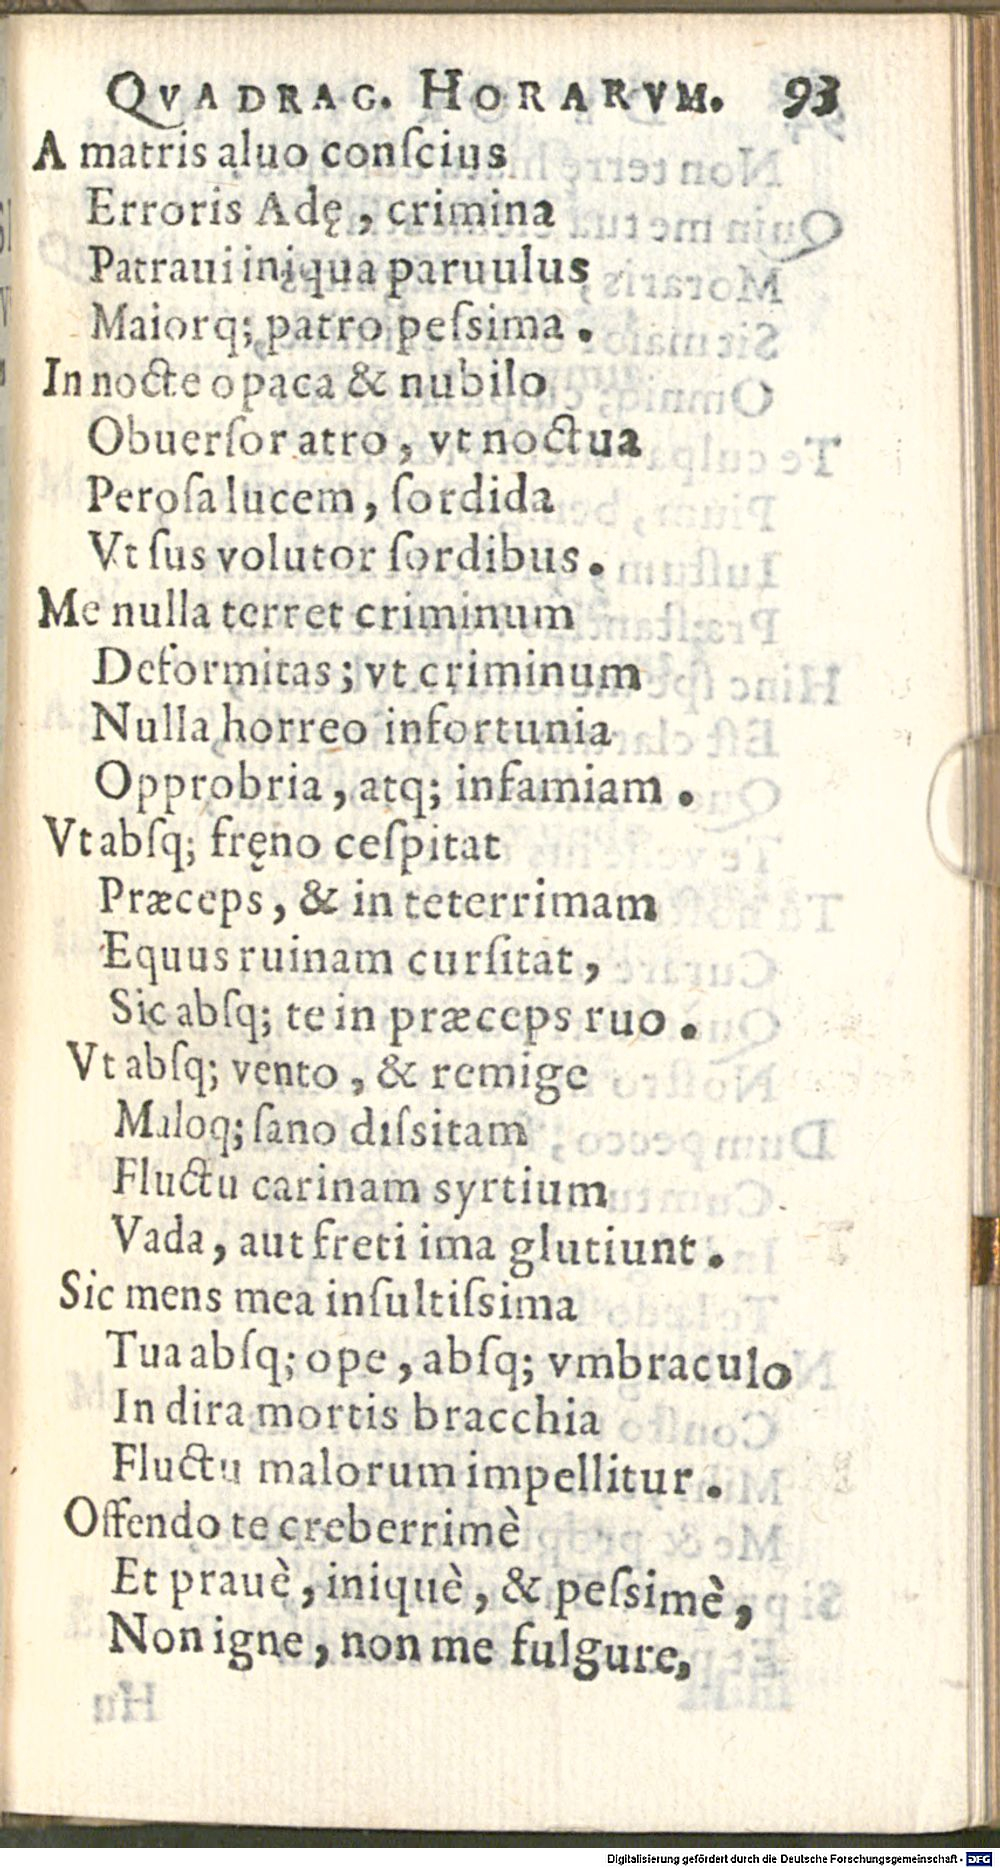 QVADRAG. HORARVM. 93
A matris aluo conſcius
Erroris Adę, crimina
Patraui iniqua paruulus
Maiorq; patro peſsima.
In nocte opaca & nubilo
Obuerſor atro, vt noctua
Peroſa lucem, ſordida
Vt ſus volutor ſordibus.
Me nulla terret criminum
Deformitas; vt criminum
Nulla horreo infortunia
Opprobria, atq; infamiam.
Vt abſq; fręno ceſpitat
Præceps, & in teterrimam
Equus ruinam curſitat,
Sic abſq; te in præceps ruo.
Vt abſq; vento, & remige
Maloq; ſano diſsitam
Fluctu carinam syrtium
Vada, aut freti ima glutiunt.
Sic mens mea inſultiſsima
Tua abſq; ope, abſq; vmbraculo
In dira mortis bracchia
Fluctu malorum impellitur.
Offendo te creberrimè
Et prauè, iniquè, & peſsimè,
Non igne, non me fulgure,
Digitalisierung gefördert durch die Deutsche Forschungsgemeinschaft - DFG